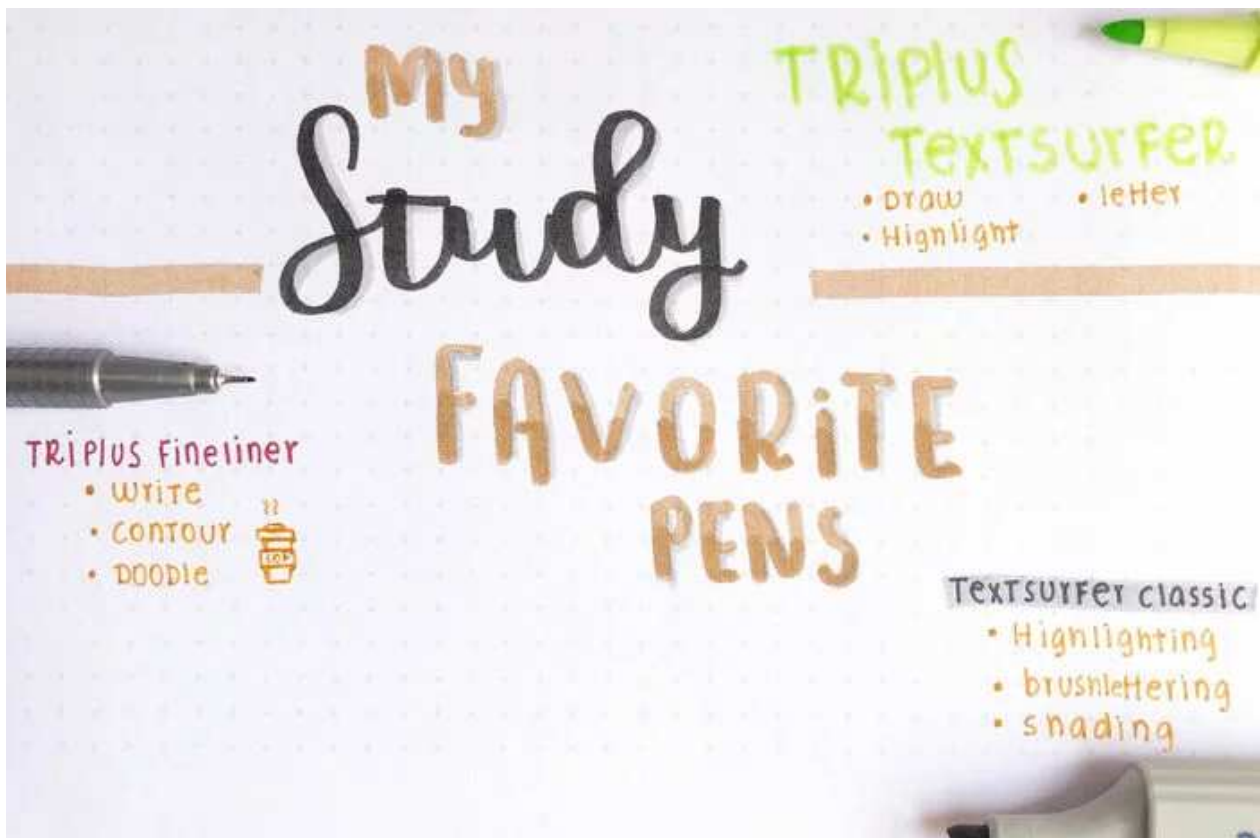 My
Study
FAVORiTE
PENS
TRiPlUS
TexTSUrFer
• Draw
• letter
• Highlight
TRiPlUS Fineliner
• write
• Contour
• DOODle
TexTSUrFer Classic
• Highlighting
• brushlettering
• shading